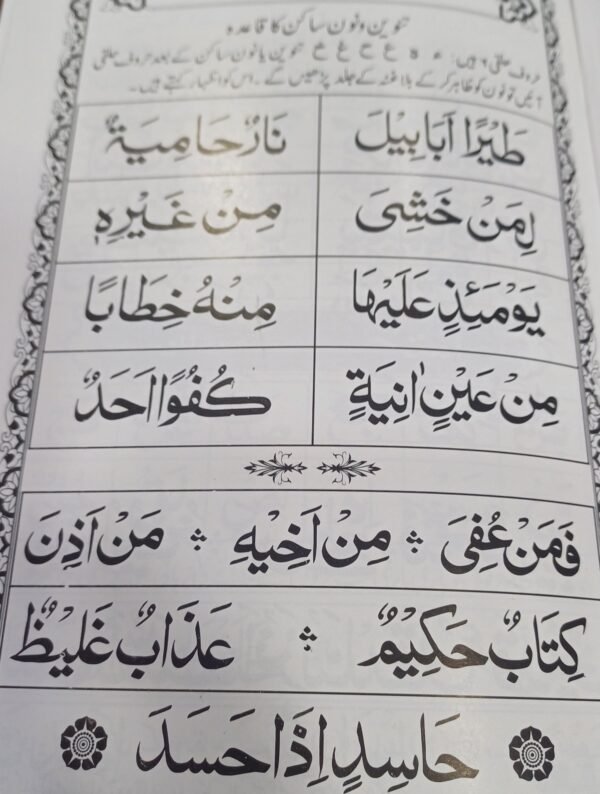 تنوین و نون ساکن کا قاعدہ
حروف حلقی ۶ ہیں: ء ہ ع ح غ خ تنوین یا نون ساکن کے بعد حروف حلقی
آئیں تو نون کو ظاہر کر کے بلا غنہ کے جلد پڑھیں گے۔ اس کو اظہار کہتے ہیں۔
طَيْرًا اَبَابِيْلَ نَارٌ حَامِيَةٌ
لِمَنْ خَشِىَ مِنْ غَيْرِهٖ
يَوْمَئِذٍ عَلَيْهَا مِنْهُ خِطَابًا
مِنْ عَيْنٍ اٰنِيَةٍ كُفُوًا اَحَدٌ
فَمَنْ عُفِىَ ۞ مِنْ اَخِيْهِ ۞ مَنْ اَذِنَ
كِتَابٌ حَكِيْمٌ ۞ عَذَابٌ غَلِيْظٌ
حَاسِدٍ اِذَا حَسَدَ